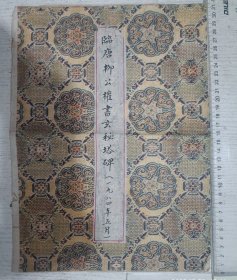 臨唐柳公權書玄秘塔碑(一九八〇年五月)